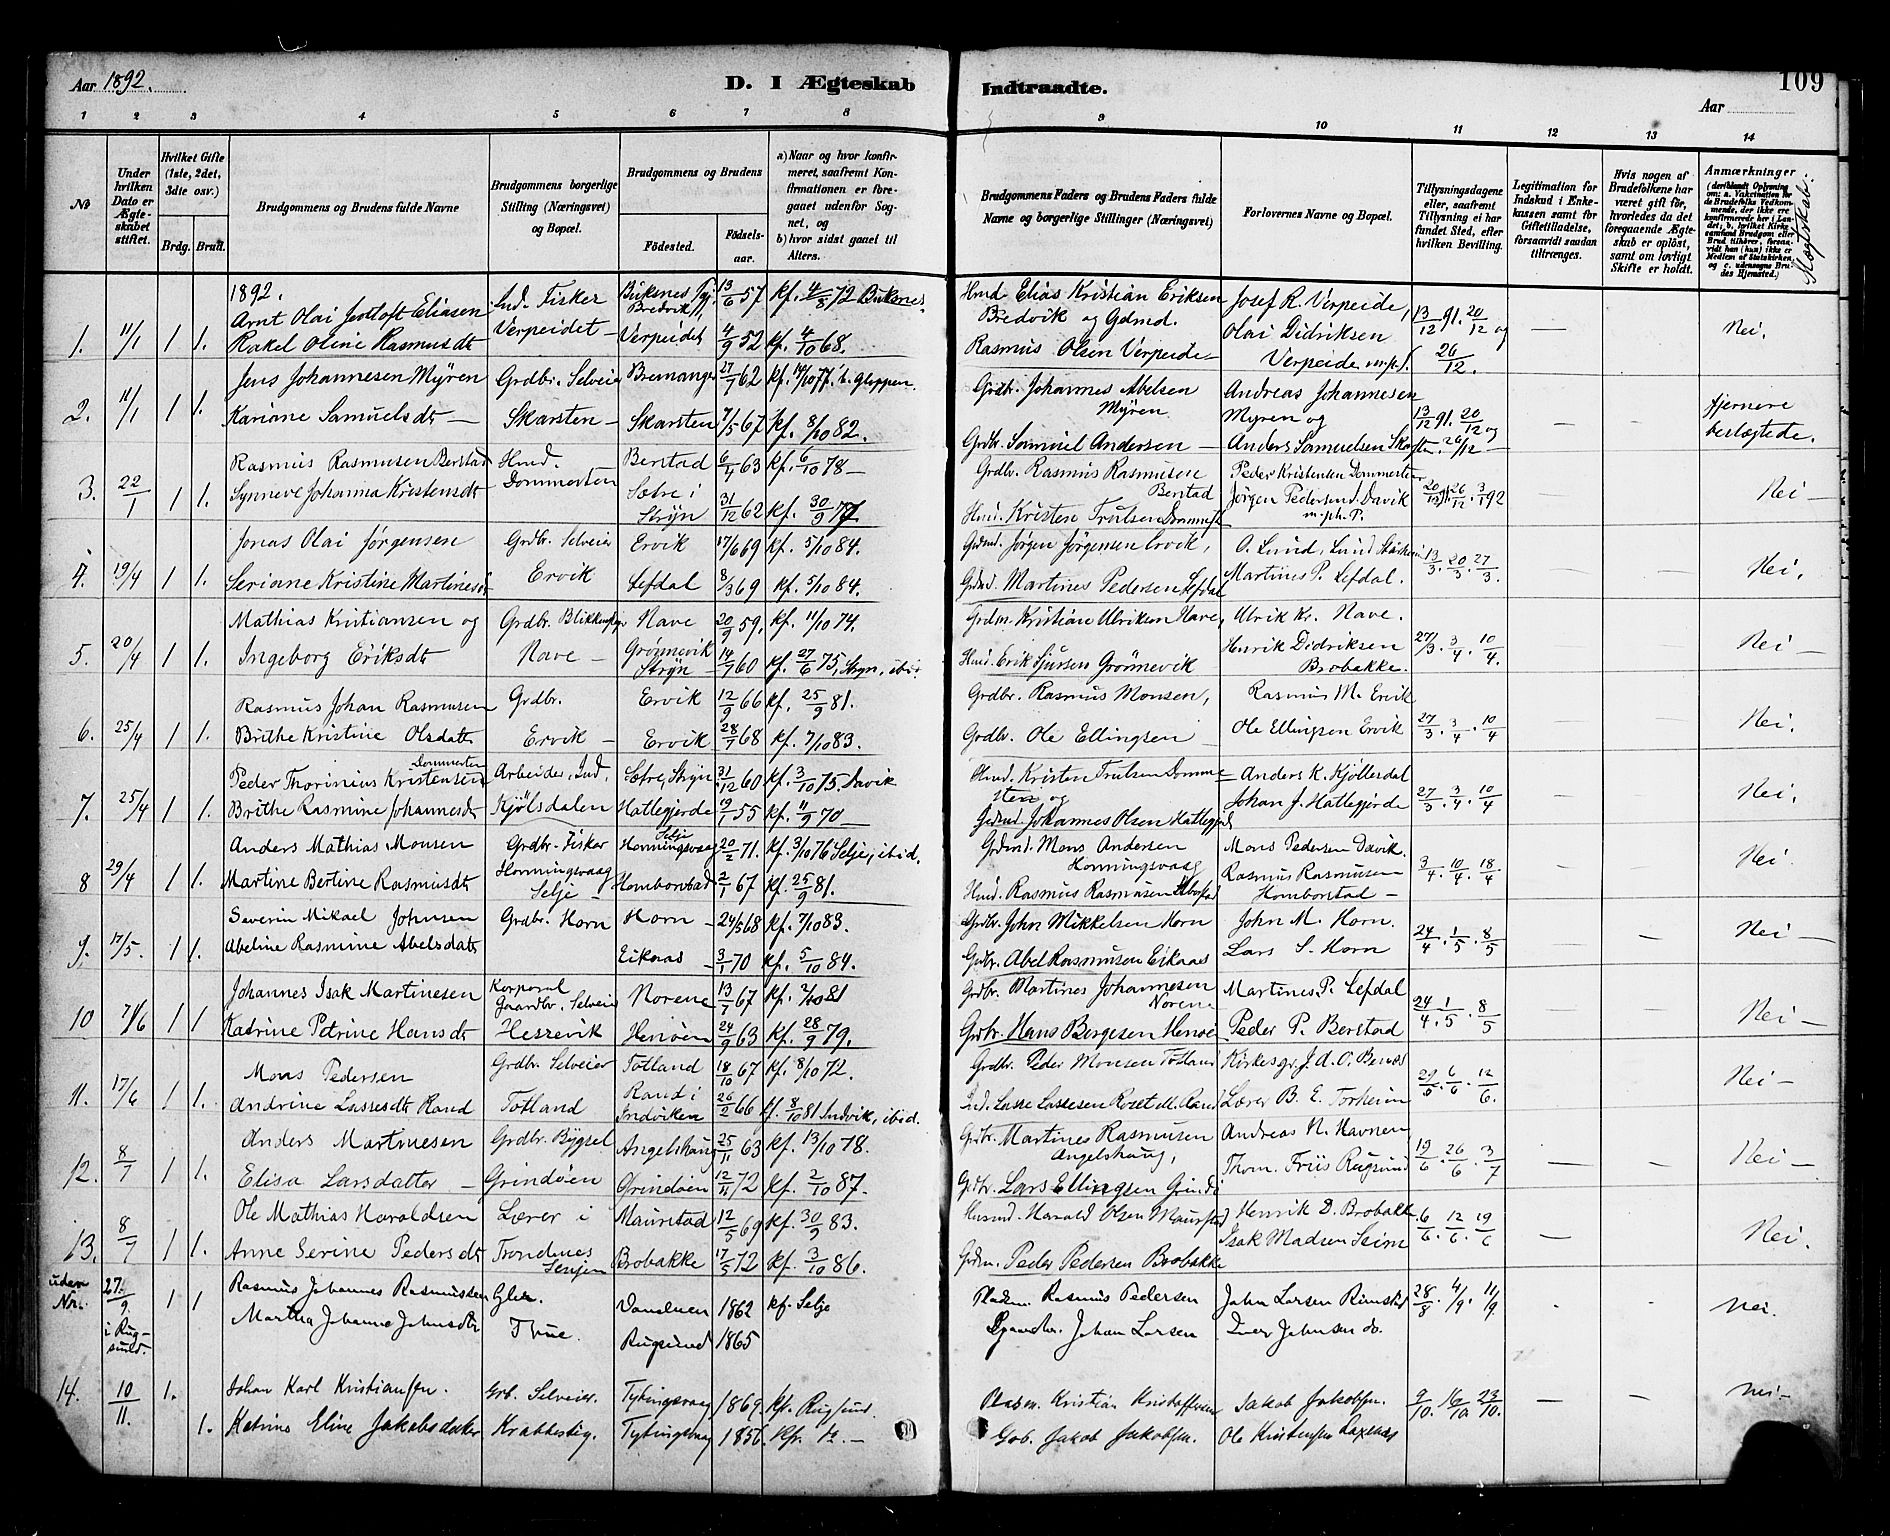 Aar 1892.
D. I Ægteskab
Indtraadte.
109
Aar
1 2 3 4 5 6 7 8
9 10 11 12 13 14
№
Under hvilken Dato er Ægteskabet stiftet.
Hvilket Gifte (1ste, 2det, 3die osv.)
Brdg. Brud.
Brudgommens og Brudens fulde Navne
Brudgommens borgerlige Stilling (Næringsvei) og Bopæl.
Brudgommens og Brudens
Fødested.
Fødselsaar.
a) Naar og hvor konfirmeret, saafremt Konfirmationen er foregaaet udenfor Sognet, og
b) hvor sidst gaaet til Alters.
Brudgommens Faders og Brudens Faders fulde Navne og borgerlige Stillinger (Næringsvei)
Forlovernes Navne og Bopæl.
Tillysningsdagene eller, saafremt Tillysning ei har fundet Sted, efter hvilken Bevilling.
Legitimation for Indskud i Enkekassen samt for Giftetilladelse, forsaavidt saadan tiltrænges.
Hvis nogen af Brudefolkene har været gift før, hvorledes da det foregaaende Ægteskab er opløst, samt om lovligt Skifte er holdt.
Anmærkninger
Slægtskab:
1892.
1. 11/1 1 1. Arnt Olai Eliasen Ind. Fisker Buksnes Bredvik 13/6 57 kf. 4/8 72 Buksnes.
Rakel Oline Rasmusdt Verpeidet Verpeidet 4/9 52 kf. 4/10 68.
Hmd. Elias Kristian Eriksen Bredvik og Gdmd. Josef R. Verpeide, 13/12 91. 20/12 og 26/12. — Nei.
Rasmus Olsen Verpeide Olai Didriksen Verpeide
2. 11/1 1 1. Jens Johannesen Myren Grdbr. Selveier Bremanger 27/7 62 kf. 14/10 77. Gloppen.
Kariane Samuelsdt — Skarsten — Skarsten 7/5 67 kf. 8/10 82.
Grdbr. Johannes Abelsen Myren Andreas Johannesen Myren og 13/12 91. 20/12 og 26/12 — — fjernere beslægtede.
Grdbr. Samuel Andersen — Anders Samuelsen
3. 22/1 1 1. Rasmus Rasmusen Berstad Hmd. Berstad 6/4 63 kf. 6/10 78 —
Synneve Johanna Kristensdt Dommersten Sætre i Stryn 31/12 62 kf. 30/9 77
Grdbr. Rasmus Rasmusen Berstad Peder Kristensen Dommersten 20/12 91 26/12 . 3/1 92 — — Nei —
Hmd. Kristen Trulsen Jørgen Pedersen Davik m. ph. P.
4. 19/4 1 1. Jonas Olai Jørgensen Grdbr. Selveier Ervik 17/6 69 kf. 5/10 84.
Seriane Kristine Martinesdt Ervik Lefdal 8/3 69 kf. 5/10 84.
Gdmd. Jørgen Jørgensen Ervik, A. Lund, Lund 13/3 . 20/3 . 27/3. — — Nei.
Grdmd. Martines Pedersen Lefdal Martines P. Lefdal.
5. 20/4 1 1. Mathias Kristiansen og Grdbr. Blikkenslager Nave 20/9 59. kf. 11/10 74.
Ingeborg Eriksdt Nave — Grønnevik Stryn 14/7 60 kf. 27/6 75, Stryn, ibid.
Grdm. Kristian Ulriksen Nave, Ulrik Kr. Nave. 27/3 . 3/4 . 10/4. — — Nei —
Hmd. Erik Sjursen Grønnevik Henrik Didriksen Brobakke.
6. 25/4 1 1. Rasmus Johan Rasmusen Grdbr. Ervik 12/9 66 kf. 25/9 81.
Brithe Kristine Olsdatt Ervik — Ervik 28/7 68 kf. 7/10 83.
Grdbr. Rasmus Monsen, Rasmus M. Ervik 27/3 . 3/4 . 10/4 — — Nei.
Grdbr. Ole Ellingsen — Ole Ellingsen Ervik
7. 25/4 1 1. Peder Thorinius Kristensen Dommersten Arbeider, Ind. Sætre, Stryn 31/12 60 kf. 3/10 75. Davik
Brithe Rasmine Johannesdt Kjølsdalen Hattegjerde 19/1 55 kf. 11/9 70
Hmd. Kristen Trulsen Dommersten og Anders K. Kjøllesdal 27/3 . 3/4 . 10/4 — — Nei.
Gdmd. Johannes Olsen Hattegjerde Johan J. Hattegjerde
8 29/4 1 1. Anders Mathias Monsen Grdbr. Fisker Honningsvaag Selje 20/2 71. kf. 3/10 76 Selje, ibid.
Martine Bertine Rasmusdt Honningsvaag Selje — Homborstad 2/1 67 kf. 25/9 81.
Grdmd. Mons Andersen Honningsvaag Mons Pedersen Davik. 3/4 . 10/4 . 18/4 — — Nei.
Hmd. Rasmus Rasmusen Rasmus Rasmusen Homborstad —
9. 17/5. 1 1. Severin Mikael Johnsen Grdbr. Horn Horn — 24/5 68 kf. 7/10 83.
Abeline Rasmine Abelsdatt Eikaas — 3/1 70 kf. 5/10 84.
Grdbr. John Mikkelsen Horn John M. Horn. 24/4 . 1/5 . 8/5 — — Nei —
Grdbr. Abel Rasmusen Eikaas Lars S. Horn
10 7/6 1 1 Johannes Isak Martinesen Korporal Gaardbr. Selveier Norene 13/7 67 kf. 2/10 81
Katrine Petrine Hansdt Hessevik Henøen 24/9 63 kf. 28/9 79.
Grdbr. Martines Johannesen Norene Martines P. Lefdal 24/4 . 1/5 . 8/5 — — Nei —
Grdbr. Hans Børgesen Henøe Peder P. Berstad
11. 17/6 1 1. Mons Pedersen Grdbr. Selveier Totland 18/10 67 kf. 8/10 72.
Andrine Lassesdt Rand Totland Rand i Indviken 26/2 66 kf. 8/10 81 Indvik, ibid.
Grdbr. Peder Monsen Totland Kirkesgr. J. A. O. 29/5 . 6/6 . 12/6. — — Nei —
Ind. Lasse Lassesen Rand Lærer B. E. Torheim
12. 8/7 1 1. Anders Martinesen Grdbr. Bygsel Angelshaug 25/11 63 kf. 13/10 78.
Elisa Larsdatter — Grindøen Grindøen 12/11 72 kf. 2/10 87.
Grdbr. Martines Rasmusen Angelshaug, Andreas N. Havnen 19/6 . 26/6 . 3/7 — — Nei —
Grdbr. Lars Ellingsen Grindø Thom. Friis Rugsund
13. 8/7 1 1. Ole Mathias Haraldsen Lærer i Maurstad 12/5 69 kf. 30/9 83.
Anne Serine Pedersdt Trondenes Senjen Brobakke 17/5 72 kf. 3/10 86.
Husmd. Harald Olsen Maurstad Henrik D. Brobakk. 6/6 . 12/6 . 19/6 — Nei.
Grdm. Peder Pedersen Brobakke Isak Madsen Seim
uden Nr. 27/9 i Rugsund. 1 1 Rasmus Johannes Rasmussen 1862 kf. Selje
Martha Johanne Johnsdtr Rugsund 1865
Pladsm. Rasmus Pedersen John Larsen Rimstad 28/8 . 4/9 . 11/9 . . nei.
Johan Larsen Iver Johnsen do.
14. 10/11. 1. Johan Karl Kristiansen. Grb. Selveier. Tytingsvaag 1869. kf. Rugsund.
1. Katrine Eline Jakobsdatter Krabbestig. Tytingsvaag 1856. Kf. do. —
Pladsm. Kristian Kristoffersen Jakob Jakobsen. 9/10. 16/10. 23/10. — — nei —
Grb. Jakob Jakobsen. Ole Kristensen